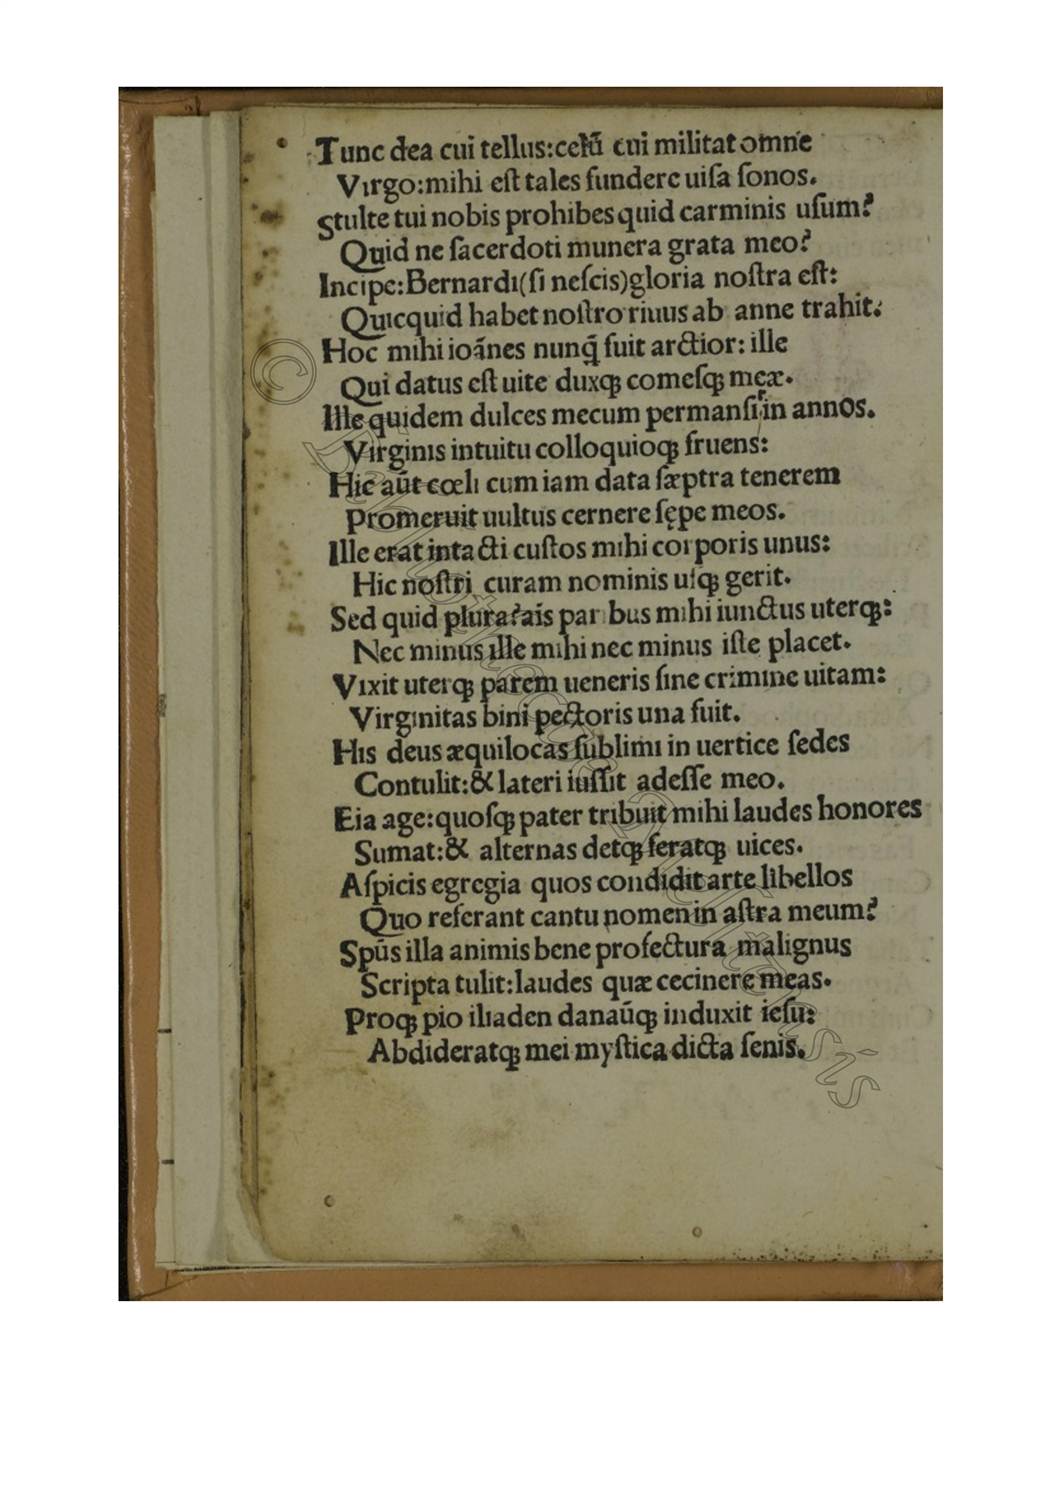 Tunc dea cui tellus:celū cui militat omne
Virgo:mihi eſt tales fundere uiſa ſonos.
Stulte tui nobis prohibes quid carminis uſum?
Quid ne ſacerdoti munera grata meo?
Incipe:Bernardi(ſi neſcis)gloria noſtra eſt:
Quicquid habet noſtro riuus ab anne trahit.
Hoc mihi ioānes nunq̄ fuit arctior: ille
Qui datus eſt uite duxqꝫ comeſqꝫ meæ.
Ille quidem dulces mecum permanſit in annos.
Virginis intuitu colloquioqꝫ fruens:
Hic aūt cœli cum iam data ſæptra tenerem
Promeruit uultus cernere ſępe meos.
Ille erat intacti cuſtos mihi corporis unus:
Hic noſtri curam nominis uſqꝫ gerit.
Sed quid plura?ais paribus mihi iunctus uterqꝫ:
Nec minus ille mihi nec minus iſte placet.
Vixit uterqꝫ parem ueneris ſine crimine uitam:
Virginitas bini pectoris una fuit.
His deus æquilocas ſublimi in uertice ſedes
Contulit:& lateri iuſſit adeſſe meo.
Eia age:quoſqꝫ pater tribuit mihi laudes honores
Sumat:& alternas detqꝫ feratqꝫ uices.
Aſpicis egregia quos condidit arte libellos
Quo referant cantu nomen in aſtra meum?
Spūs illa animis bene profectura malignus
Scripta tulit:laudes quæ cecinere meas.
Proqꝫ pio iliaden danaūqꝫ induxit ieſu:
Abdideratqꝫ mei myſtica dicta ſenis.